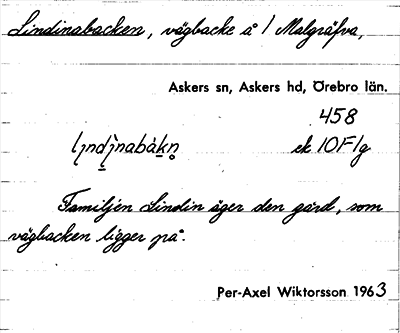 Lindinabacken, vägbacke å 1 Malgräfva,
Askers sn, Askers hd, Örebro län.
458
ek 10F1g
Familjen Lindin äger den gård, som
vägbacken ligger på.
Per-Axel Wiktorsson 1963